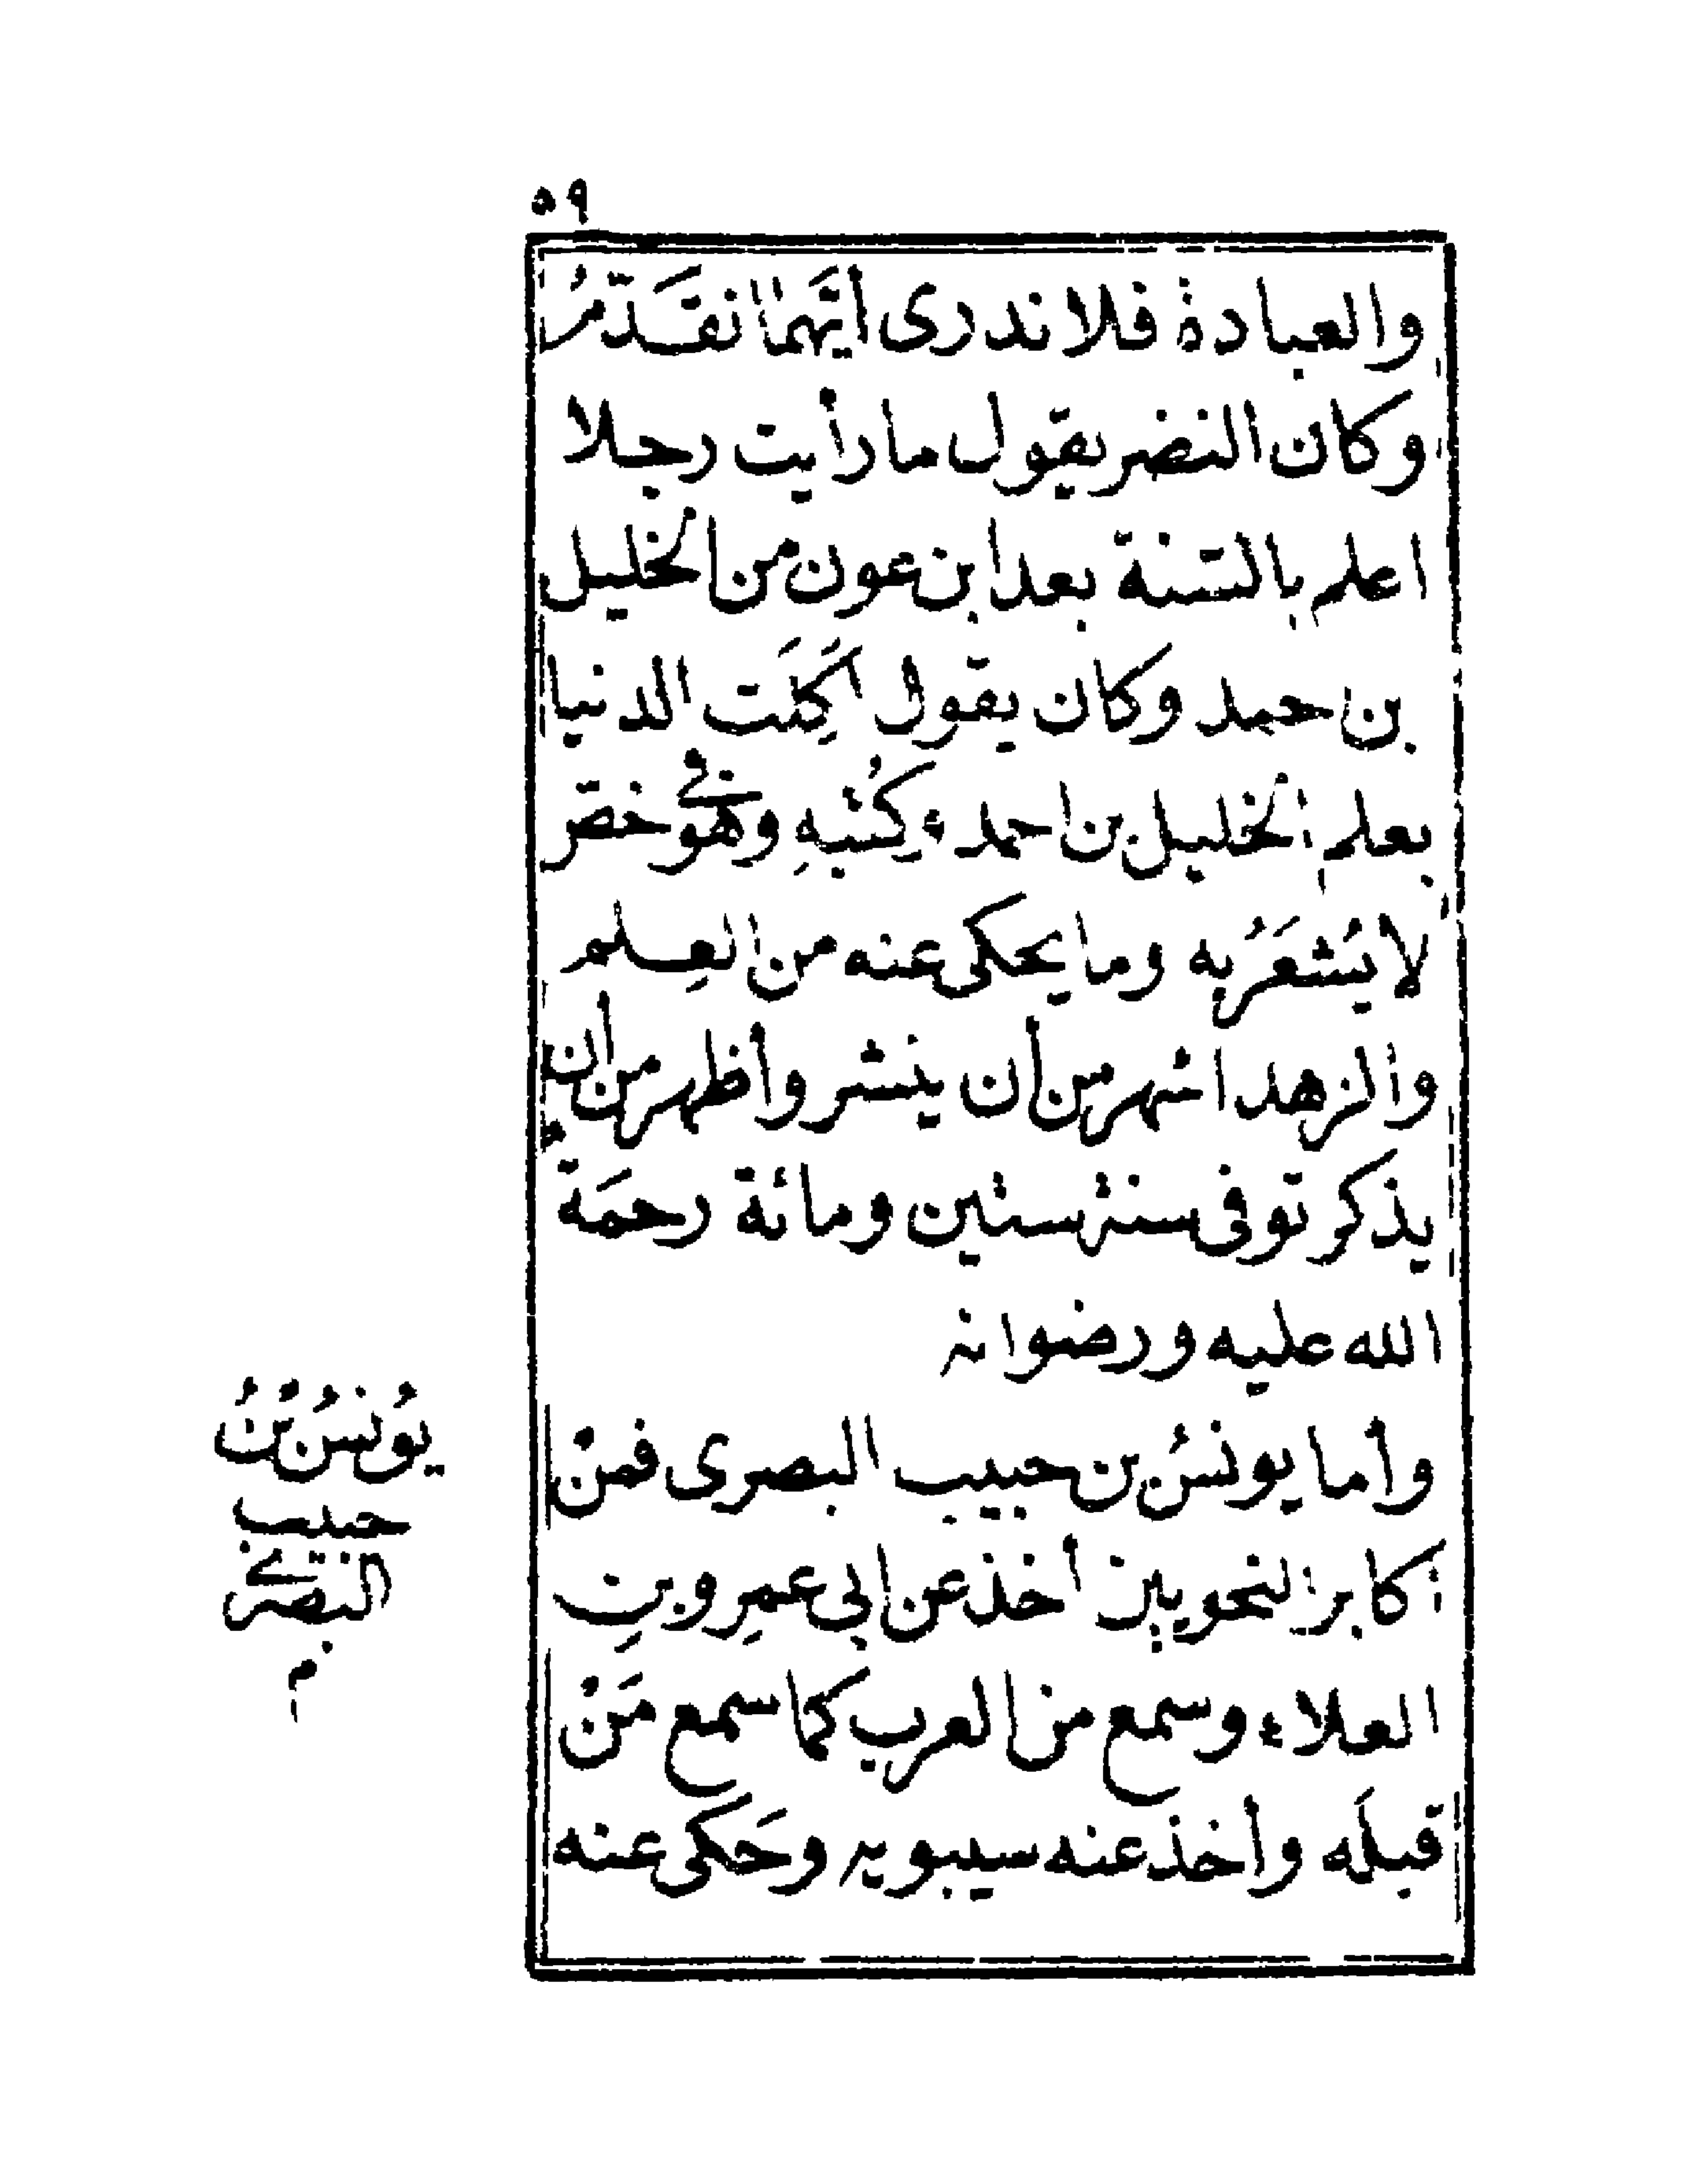 ٥٩
والعبادة فلا ندرى أيَّهما نقَدّمُ
وكان النضر يقول ما رأيت رجلا
اعلم بالسّنة بعد ابن عون من الخليل
بن حمد وكان يقول اكِلَت الدنيا
بعلم الخليل بن احمد وكُتبهِ وهو فى خصّ
لا يُشعَرُ به وما يحكى عنه من العِلم
والزهد اشهر من أن ينشر وأظهر من أن
يذكر توفى سنة ستين ومائة رحمَة
الله عليه ورضوانه
وأما يونسُ بن حبيب البصرى فمنْ
اكابر النحويين أخذ عن ابى عمرِو بنِ
العلاء وسمع من العرب كما سمع مَنْ
قبلَه وأخذ عنه سيبويه وحَكى عنه
يُونسُ بْنُ
حبيب
البصرى
م